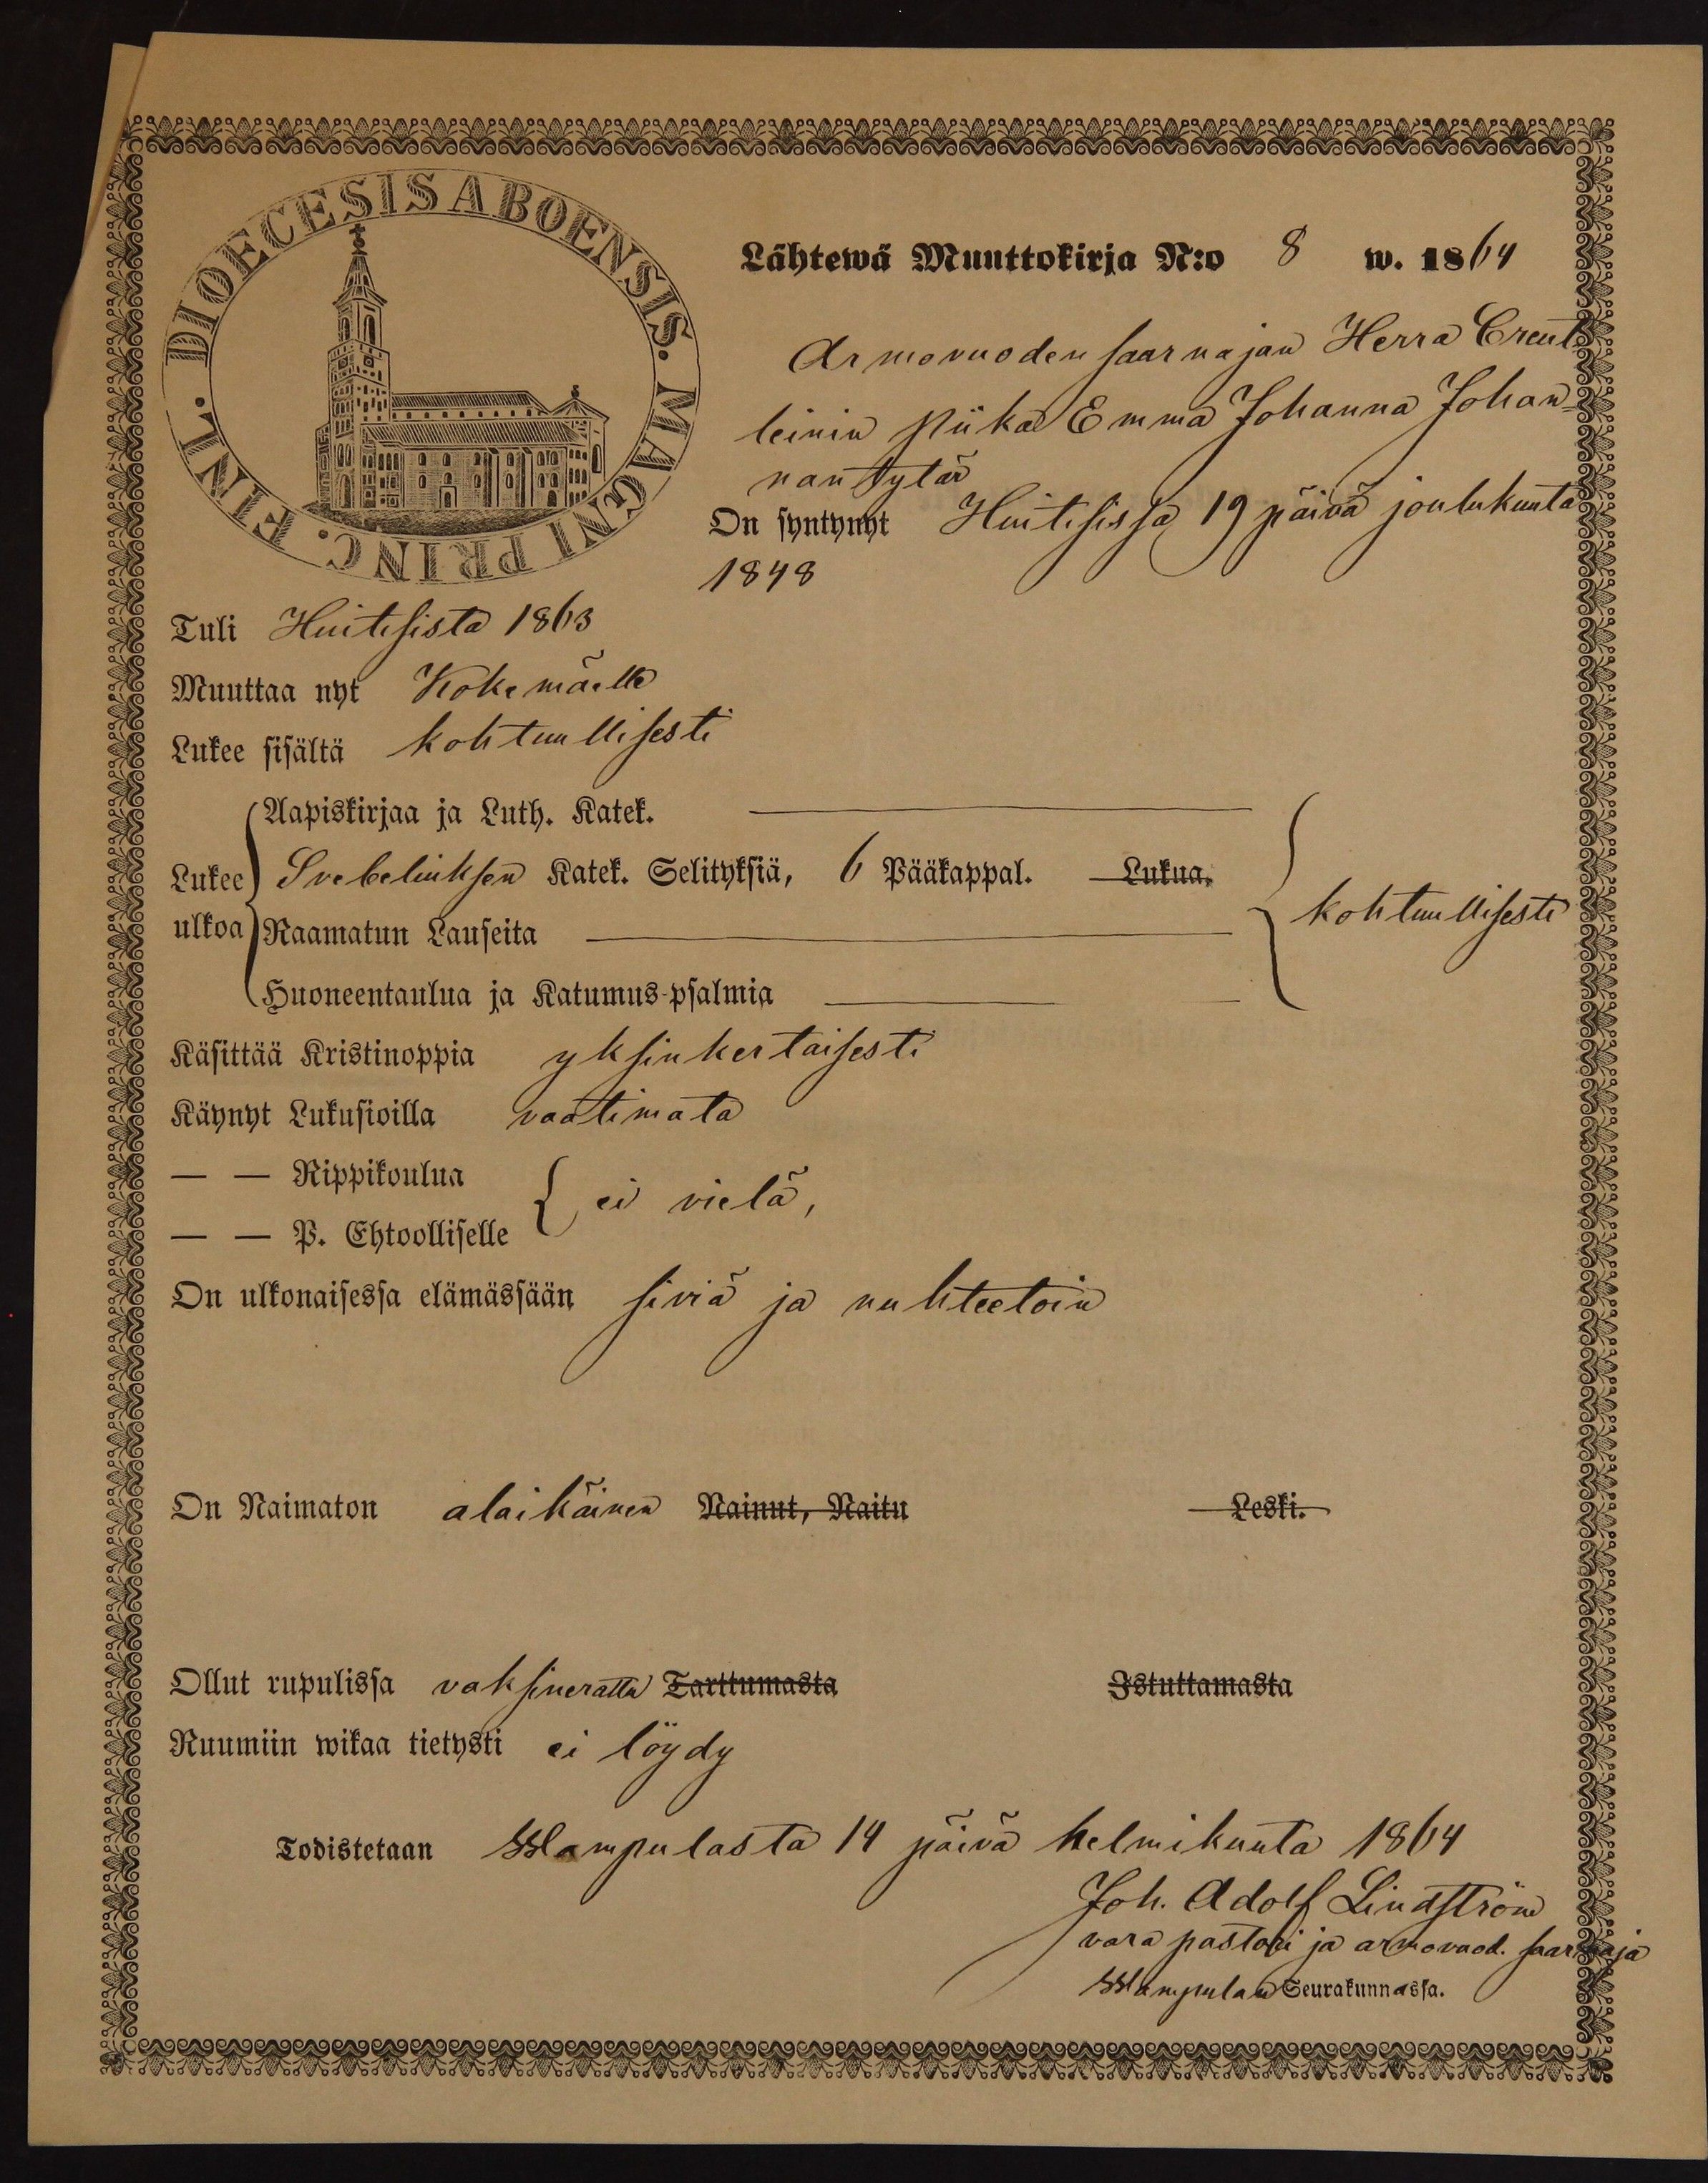 DIOECESIS ABOENSIS. MAGNI PRINC. FINL.
Lähtewä Muuttokirja N:o 8 w. 1864
Armovuoden saarnajan Herra Creut
leinin piika Emma Johanna Johan=
nan tytär
On syntynyt Huitisissa 19 päivä joulukuuta
1848
Tuli Huitisista 1863
Muuttaa nyt Kokemäelle
Lukee sisältä kohtuullisesti
Aapiskirjaa ja Luth. Katek.
Lukee Svebeliuksen Katek. Selityksiä, 6 Pääkappal. Lukua,
ulkoa Raamatun Lauseita kohtuullisesti
Huoneentaulua ja Katumus-psalmia
Käsittää Kristinoppia yksinkertaisesti
Käynyt Lukusioilla vaatimata
— — Rippikoulua
ei vielä,
— — P. Ehtoolliselle
On ulkonaisessa elämässään siviä ja nuhteetoin
On Naimaton alaikäinen Nainut, Naitu Leski.
Ollut rupulissa vaksinerattu Tarttumasta Istuttamasta
Ruumiin wikaa tietysti ei löydy
Todistetaan Wampulasta 14 päivä helmikuuta 1864
Joh. Adolf Lindström
vara pastori ja armovuod. saarnaja
Wampulan Seurakunnassa.